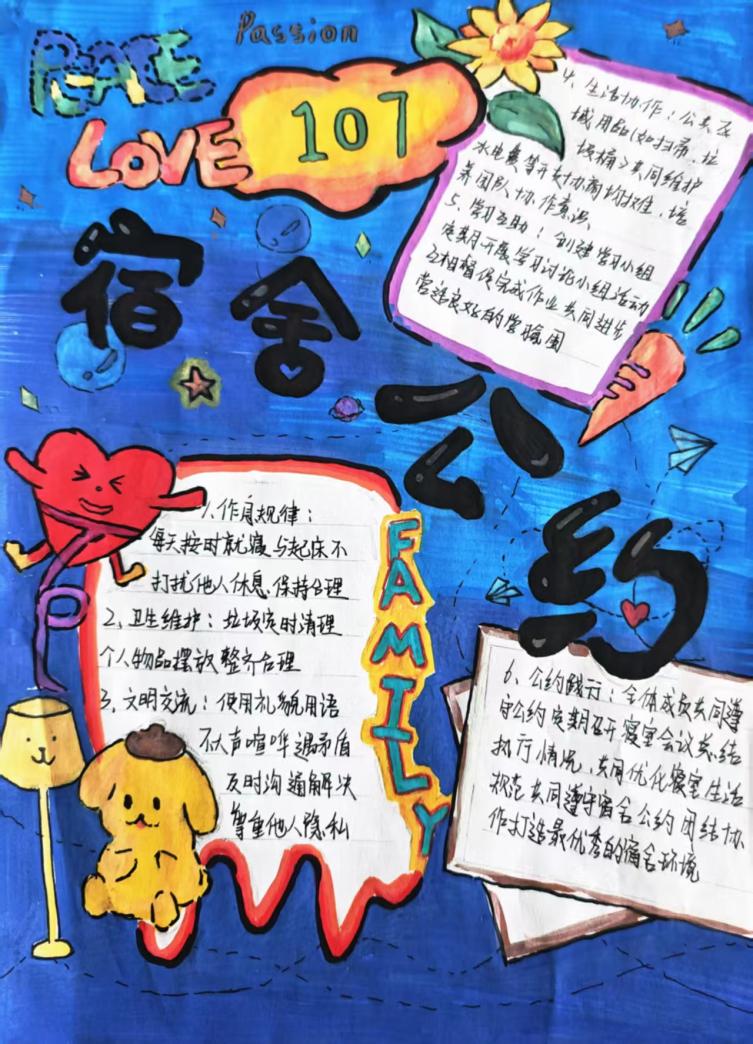 Passion
PEACE
LOVE
107
宿舍公约
4、生活协作：公共区
域用品(如扫帚、垃
圾桶)共同维护
水电费等开支协商均摊，培
养团队协作意识
5、学习互助：创建学习小组
定期开展学习讨论小组活动
互相督促完成作业共同进步
营造良好的学习氛围
1、作息规律：
每天按时就寝与起床不
打扰他人休息、保持合理
2、卫生维护：垃圾定时清理
个人物品摆放整齐合理
3、文明交流：使用礼貌用语
不大声喧哗遇矛盾
及时沟通解决
尊重他人隐私
FAMILY
6、公约践行：全体成员共同遵
守公约定期召开寝室会议总结
执行情况、共同优化寝室生活
规范共同遵守宿舍公约团结协
作打造最优秀的宿舍环境